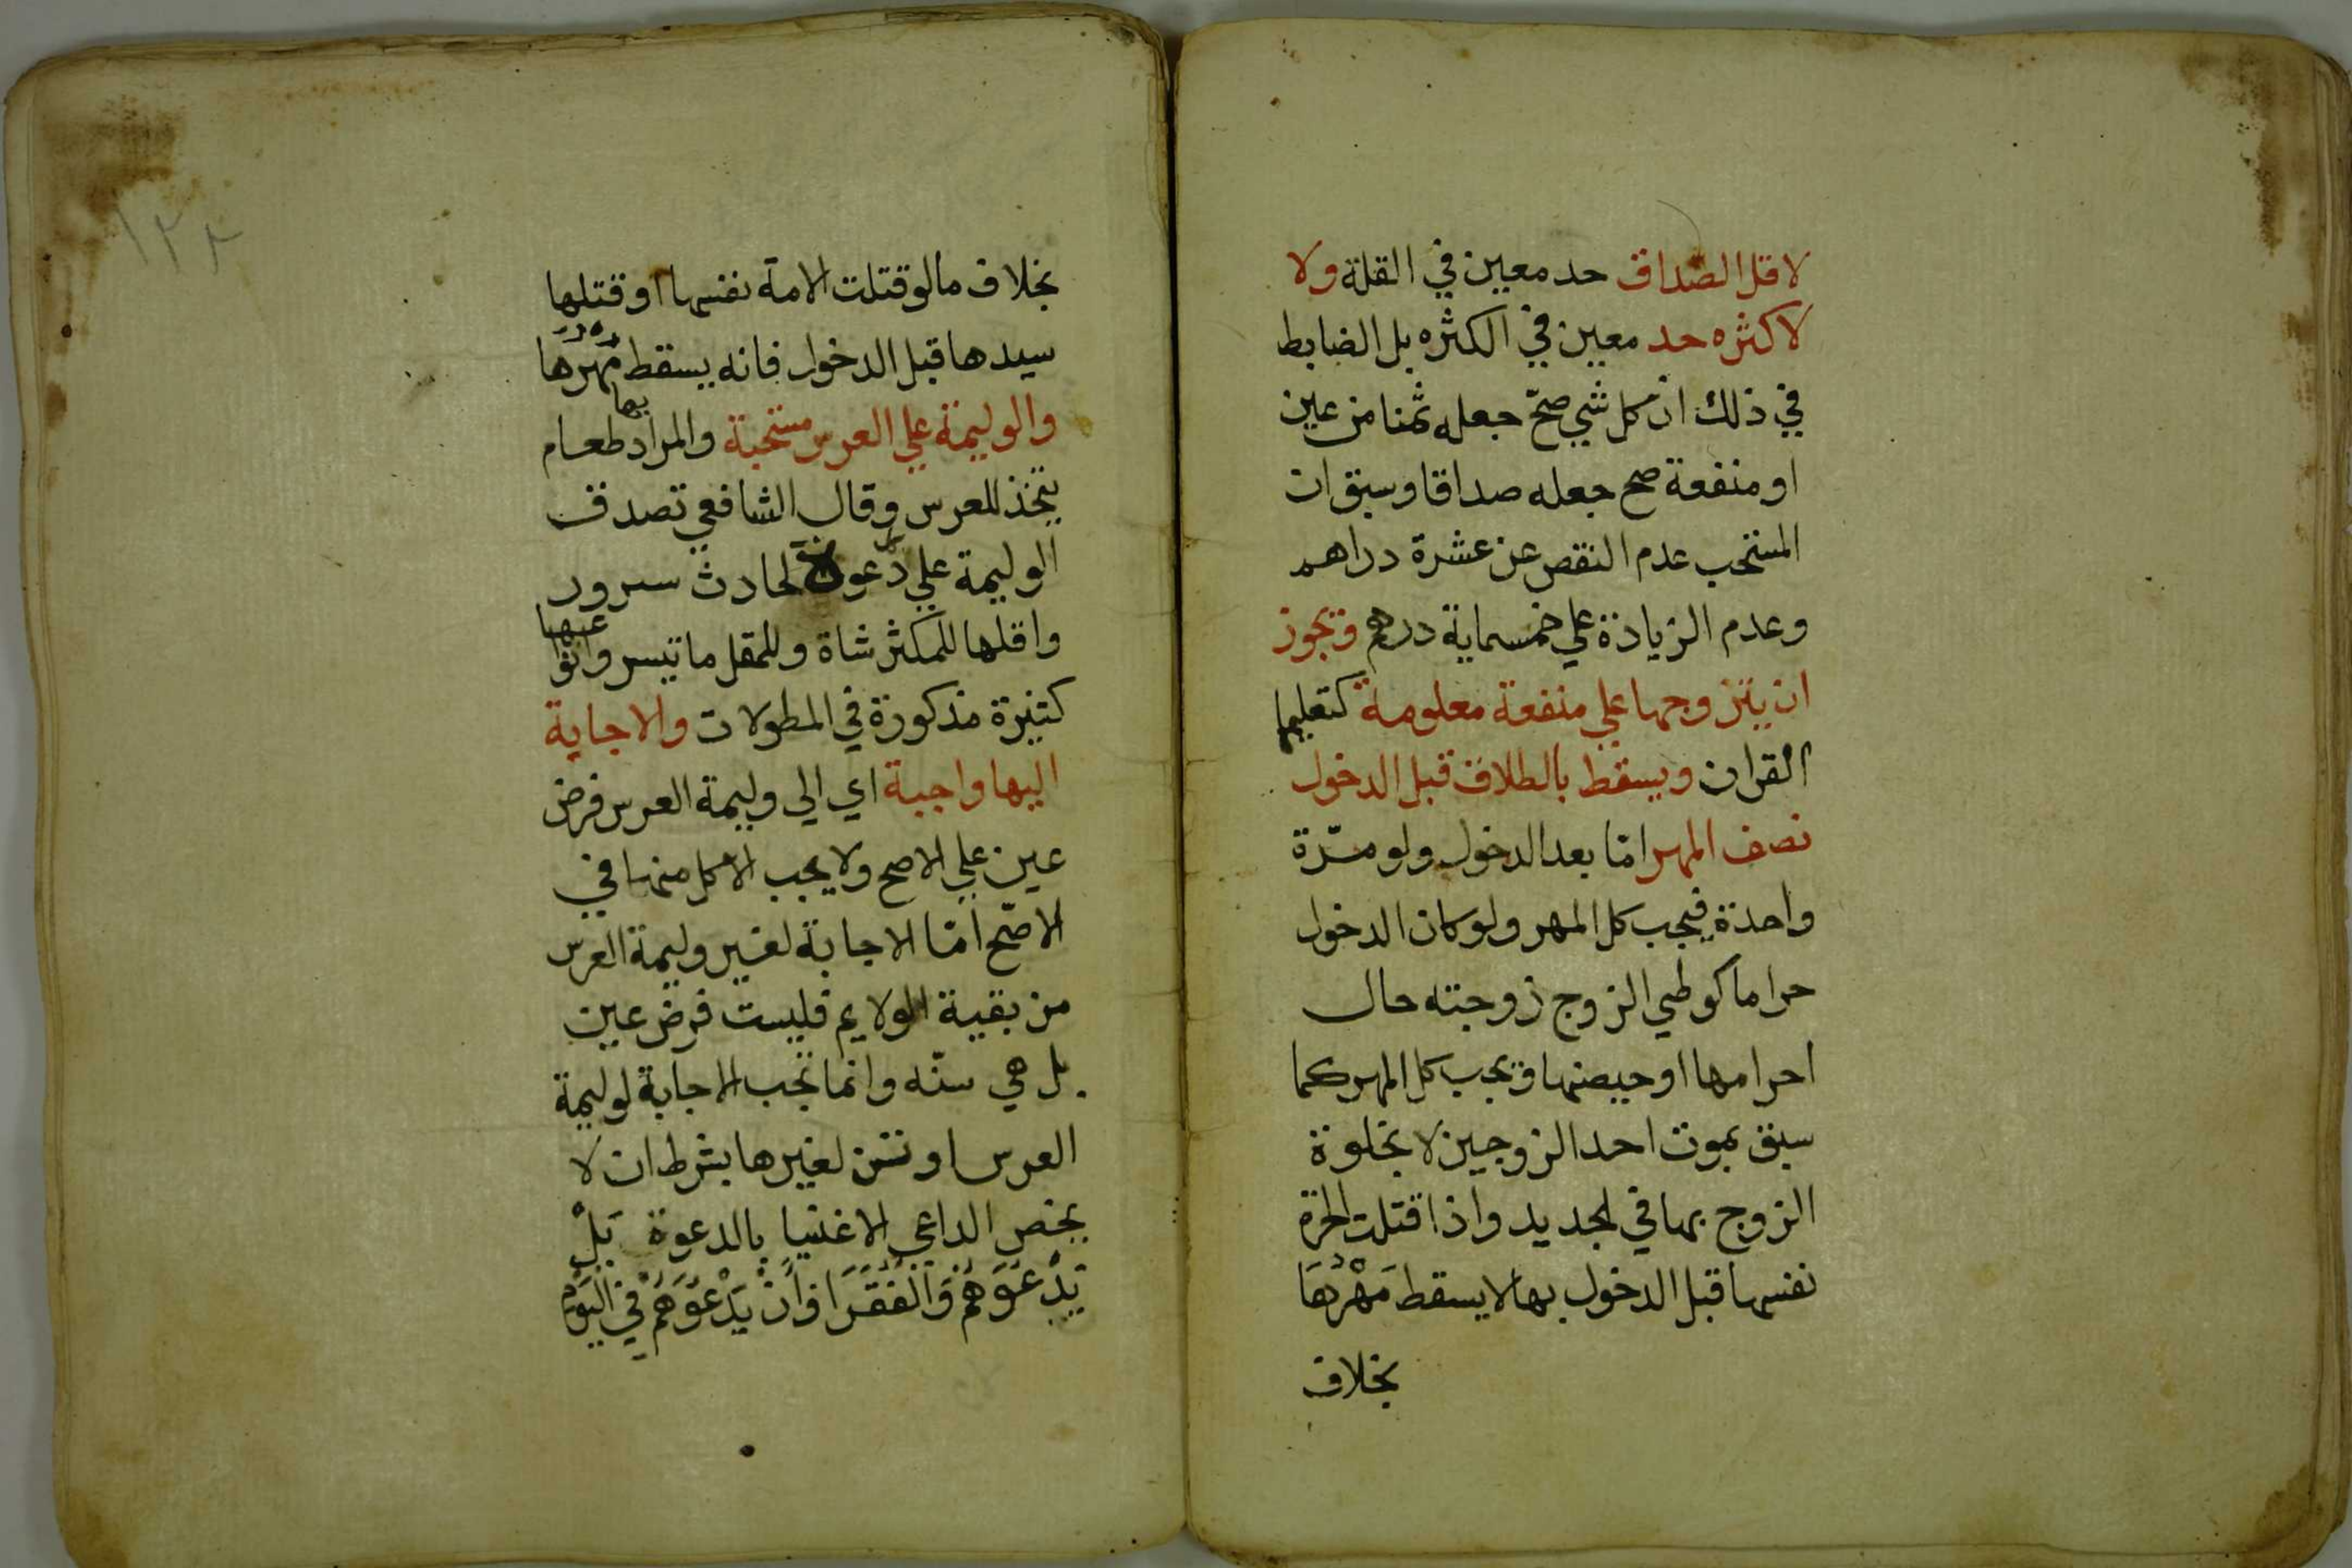 لاقل الصداق حد معين في القلة ولا
لاكثره حد معين في الكثره بل الضابط
في ذلك ان كل شي صحّ جعله ثمنا من عين
او منفعة صح جعله صداقا وسبق ان
المستحب عدم النقص عن عشرة دراهم
وعدم الزيادة علي خمسماية درهم ويجوز
ان يتزوجها علي منفعة معلومة كتعليمها
القران ويسقط بالطلاق قبل الدخول
نصف المهر امّا بعد الدخول ولو مرّة
واحدة فيجب كل المهر ولو كان الدخول
حراما كوطي الزوج زوجته حال
احرامها او حيضها ويجب كل المهر كما
سبق بموت احد الزوجين لا بخلوة
الزوج بها في الجديد واذا قتلت الحرة
نفسها قبل الدخول بها لا يسقط مَهْرُهَا
بخلاف
١٢٢
بخلاف ما لو قتلت الامة نفسها او قتلها
سيدها قبل الدخول فانه يسقط مَهْرُهَا
والوليمة علي العرس مستحبة والمراد بها طعام
يتخذ للعرس وقال الشافعي تصدق
الوليمة علي كل دعوة لحادث سرور
واقلها للمكثر شاة وللمقل ما تيسر وانواعها
كثيرة مذكورة في المطولات والاجابة
اليها واجبة اي الي وليمة العرس فرض
عين علي الاصح ولا يجب الاكل منها في
الاصّح امّا الاجابة لغير وليمة العرس
من بقية الولايم فليست فرض عين
بل هي سنّه وانما تجب الاجابة لوليمة
العرس او تسن لغيرها بشرط ان لا
يخص الداعي الاغنيا بالدعوة بَلْ
يَدْعُوَهُمْ وَالْفُقَرَا وَأَنْ يَدْعُوَهُمْ فِي الْيَوْمِ